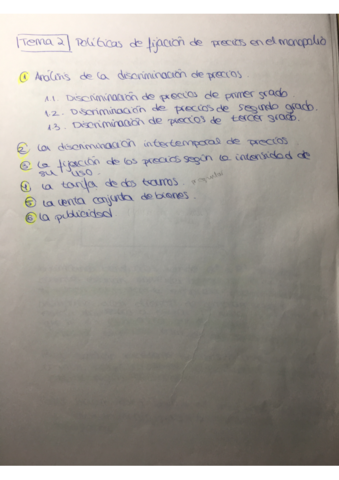 Tema 2 Políticas de fijación de precios en el monopolio
1 Análisis de la discriminación de precios
1.1. Discriminación de precios de primer grado
1.2. Discriminación de precios de segundo grado.
1.3. Discriminación de precios de tercer grado.
2 La discriminación intertemporal de precios
3 La fijación de los precios según la intensidad de
su uso.
4 La tarifa de dos tramos.
5 La venta conjunta de bienes.
6 La publicidad